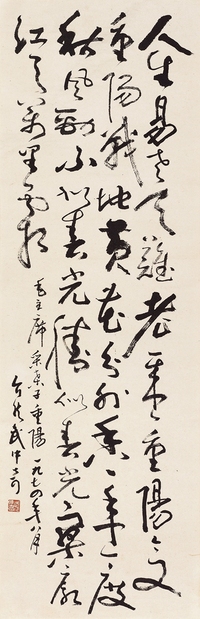 人生易老天難老歲々重陽今又
重陽戰地黄花分外香一年一度
秋風勁不似春光勝似春光寥廓
江天萬里霜
毛主席采桑子重陽 一九七四年八月
合肥武中奇